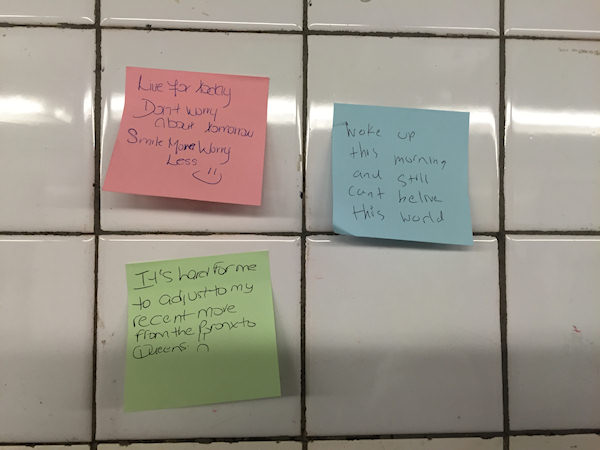 Live for today
Don't worry
About tomorrow
Smile More Worry
Less
Woke up
this morning
and still
cant belive
this world
It's hard for me
to adjust to my
recent move
from the Bronx to
Queens